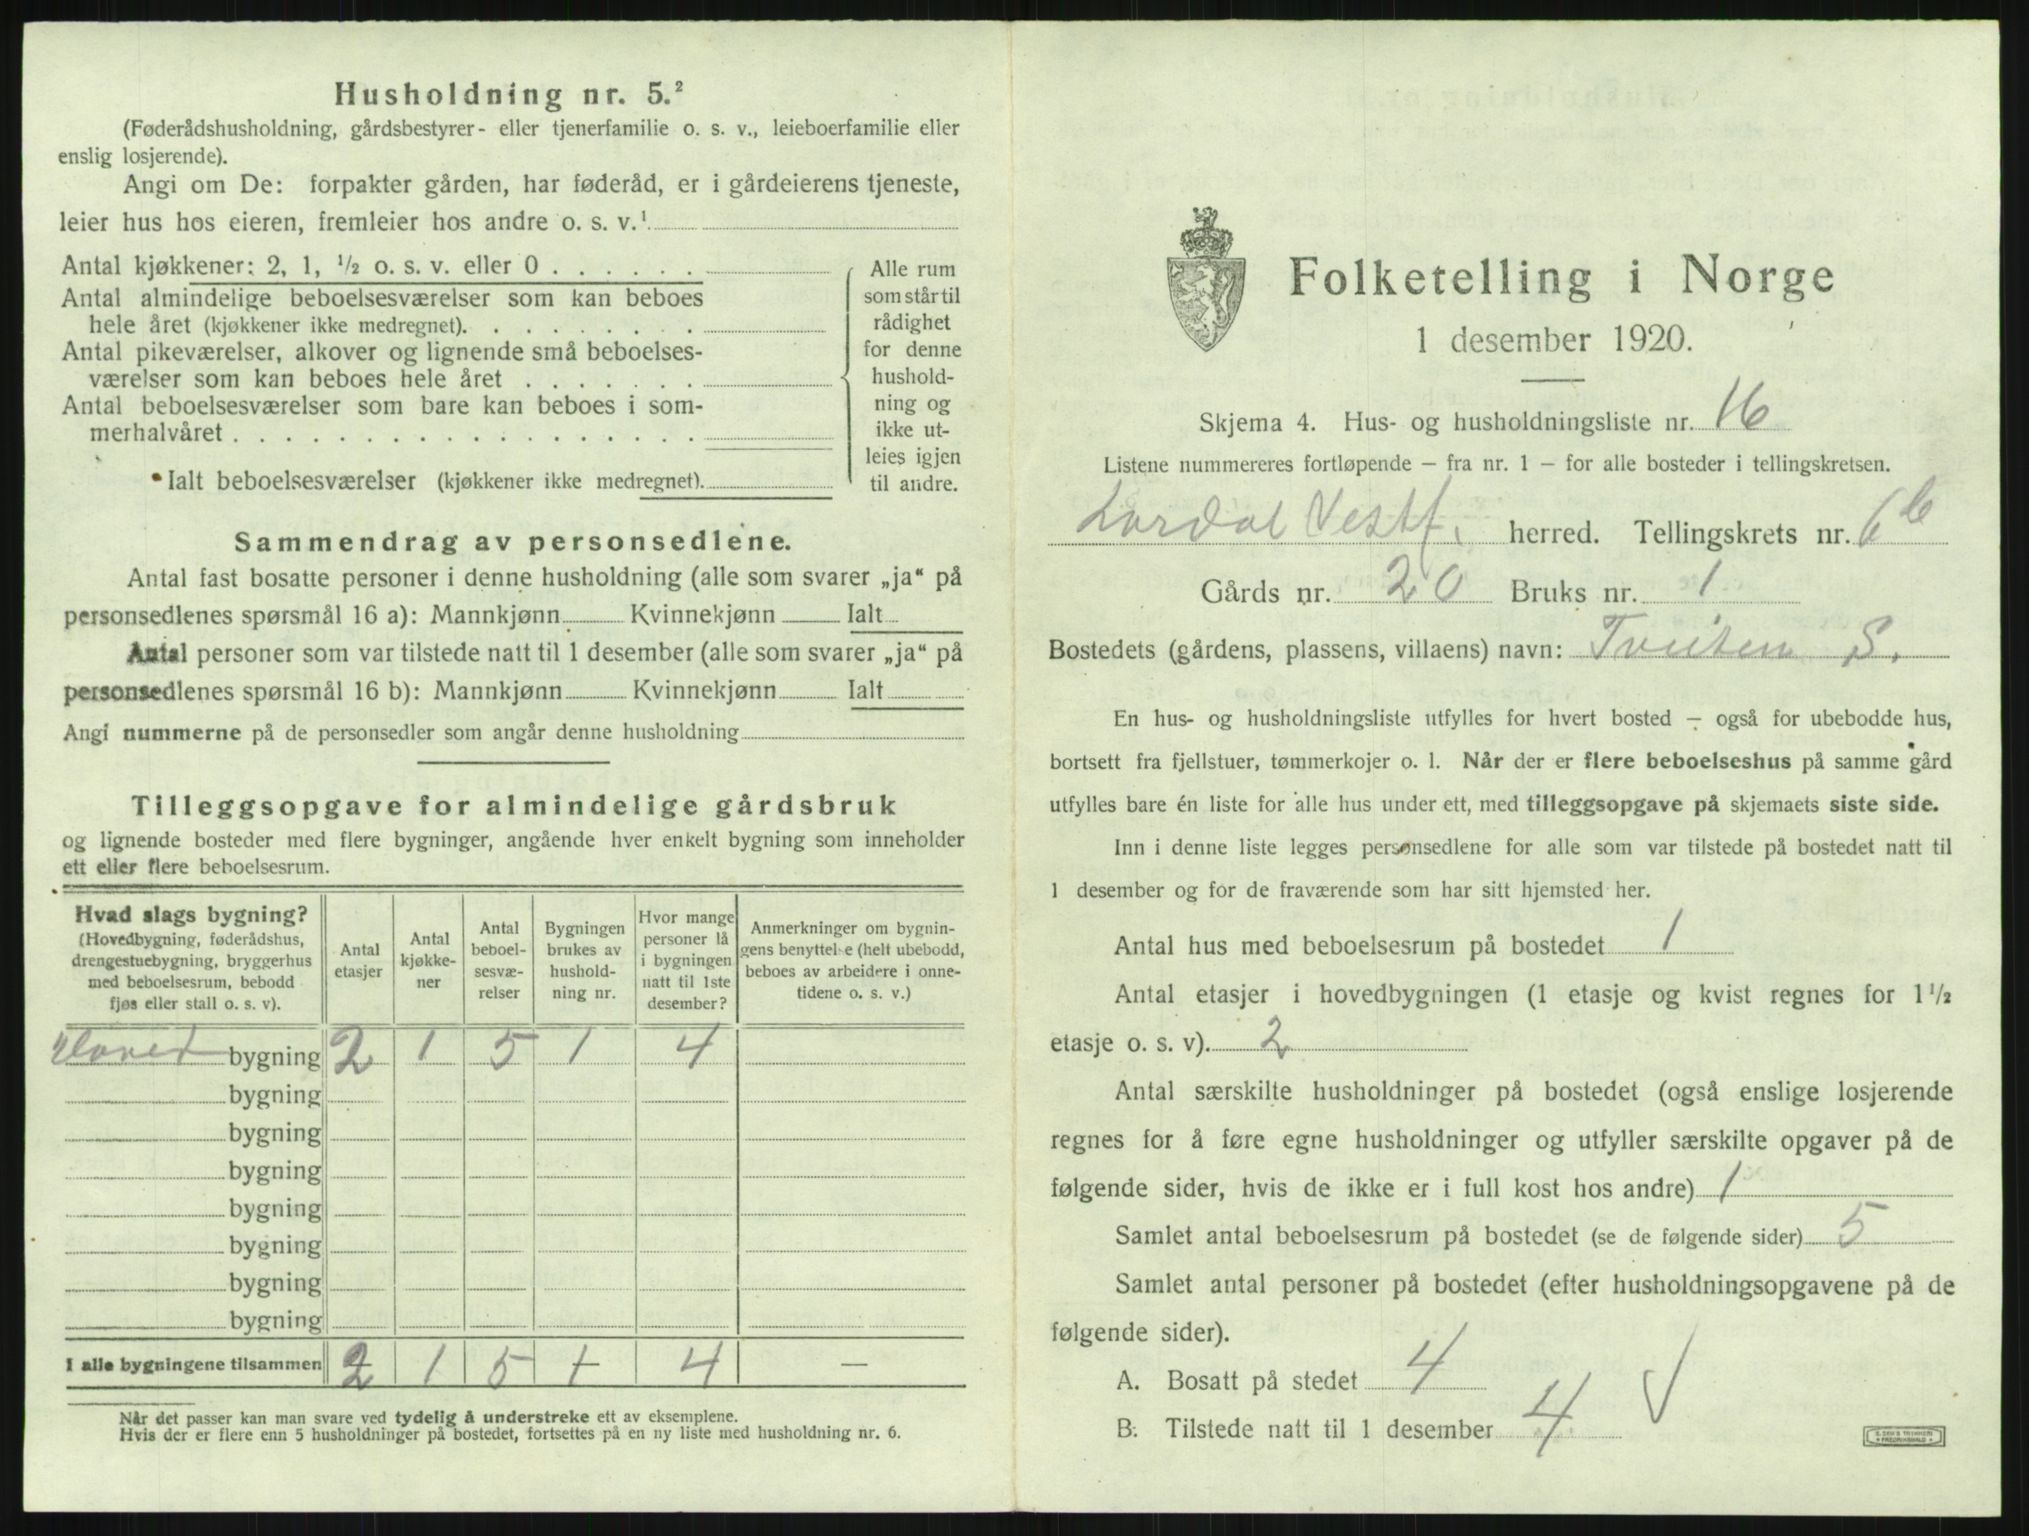 Husholdning nr. 5.²
(Føderådshusholdning, gårdsbestyrer- eller tjenerfamilie o. s. v., leieboerfamilie eller
enslig losjerende).
Angi om De: forpakter gården, har føderåd, er i gårdeierens tjeneste,
leier hus hos eieren, fremleier hos andre o. s. v.¹
Antal kjøkkener: 2, 1, ½ o. s. v. eller 0 . . . . . .
Antal almindelige beboelsesværelser som kan beboes
hele året (kjøkkener ikke medregnet). . . . . . . . .
Antal pikeværelser, alkover og lignende små beboelses-
værelser som kan beboes hele året . . . . . . .
Antal beboelsesværelser som bare kan beboes i som-
merhalvåret . . . . . . . . . . . . . . . . .
Ialt beboelsesværelser (kjøkkener ikke medregnet).
Alle rum
som står til
rådighet
for denne
hushold-
ning og
ikke ut-
leies igjen
til andre.
Sammendrag av personsedlene.
Antal fast bosatte personer i denne husholdning (alle som svarer „ja“ på
personsedlenes spørsmål 16 a): Mannkjønn Kvinnekjønn Ialt
Antal personer som var tilstede natt til 1 desember (alle som svarer „ja“ på
personsedlenes spørsmål 16 b): Mannkjønn Kvinnekjønn Ialt
Angi nummerne på de personsedler som angår denne husholdning
Tilleggsopgave for almindelige gårdsbruk
og lignende bosteder med flere bygninger, angående hver enkelt bygning som inneholder
ett eller flere beboelsesrum.
Hvad slags bygning?
(Hovedbygning, føderådshus,
drengestuebygning, bryggerhus
med beboelsesrum, bebodd
fjøs eller stall o. s. v).
Antal
etasjer
Antal
kjøkke-
ner
Antal
beboel-
sesvæ-
relser
Bygningen
brukes av
hushold-
ning nr.
Hvor mange
personer lå
i bygningen
natt til 1ste
desember?
Anmerkninger om bygnin-
gens benyttelse (helt ubebodd,
beboes av arbeidere i onne-
tidene o. s. v.)
Hoved bygning 2 1 5 1 4
bygning
bygning
bygning
bygning
bygning
bygning
bygning
I alle bygningene tilsammen 2 1 5 + 4 —
Når det passer kan man svare ved tydelig å understreke ett av eksemplene.
Hvis der er flere enn 5 husholdninger på bostedet, fortsettes på en ny liste med husholdning nr. 6.
Folketelling i Norge
1 desember 1920.
Skjema 4. Hus- og husholdningsliste nr. 16
Listene nummereres fortløpende – fra nr. 1 – for alle bosteder i tellingskretsen.
Lardal Vestf. herred. Tellingskrets nr. 6b
Gårds nr. 20 Bruks nr. 1
Bostedets (gårdens, plassens, villaens) navn: Tveiten S.
En hus- og husholdningsliste utfylles for hvert bosted – også for ubebodde hus,
bortsett fra fjellstuer, tømmerkojer o. l. Når der er flere beboelseshus på samme gård
utfylles bare én liste for alle hus under ett, med tilleggsopgave på skjemaets siste side.
Inn i denne liste legges personsedlene for alle som var tilstede på bostedet natt til
1 desember og for de fraværende som har sitt hjemsted her.
Antal hus med beboelsesrum på bostedet 1
Antal etasjer i hovedbygningen (1 etasje og kvist regnes for 1½
etasje o. s. v). 2
Antal særskilte husholdninger på bostedet (også enslige losjerende
regnes for å føre egne husholdninger og utfyller særskilte opgaver på de
følgende sider, hvis de ikke er i full kost hos andre) 1
Samlet antal beboelsesrum på bostedet (se de følgende sider) 5
Samlet antal personer på bostedet (efter husholdningsopgavene på de
følgende sider).
A. Bosatt på stedet 4
B. Tilstede natt til 1 desember 4